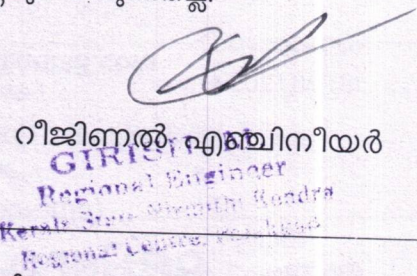 റീജിണൽ എഞ്ചിനീയർ
GIRISH
Regional Engineer
Kerala State Nirmithi Kendra
Regional Centre, Palakkad